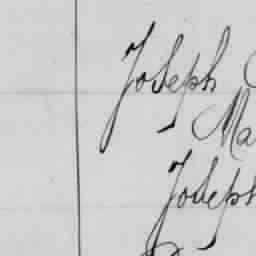 Joseph
Ma
Joseph